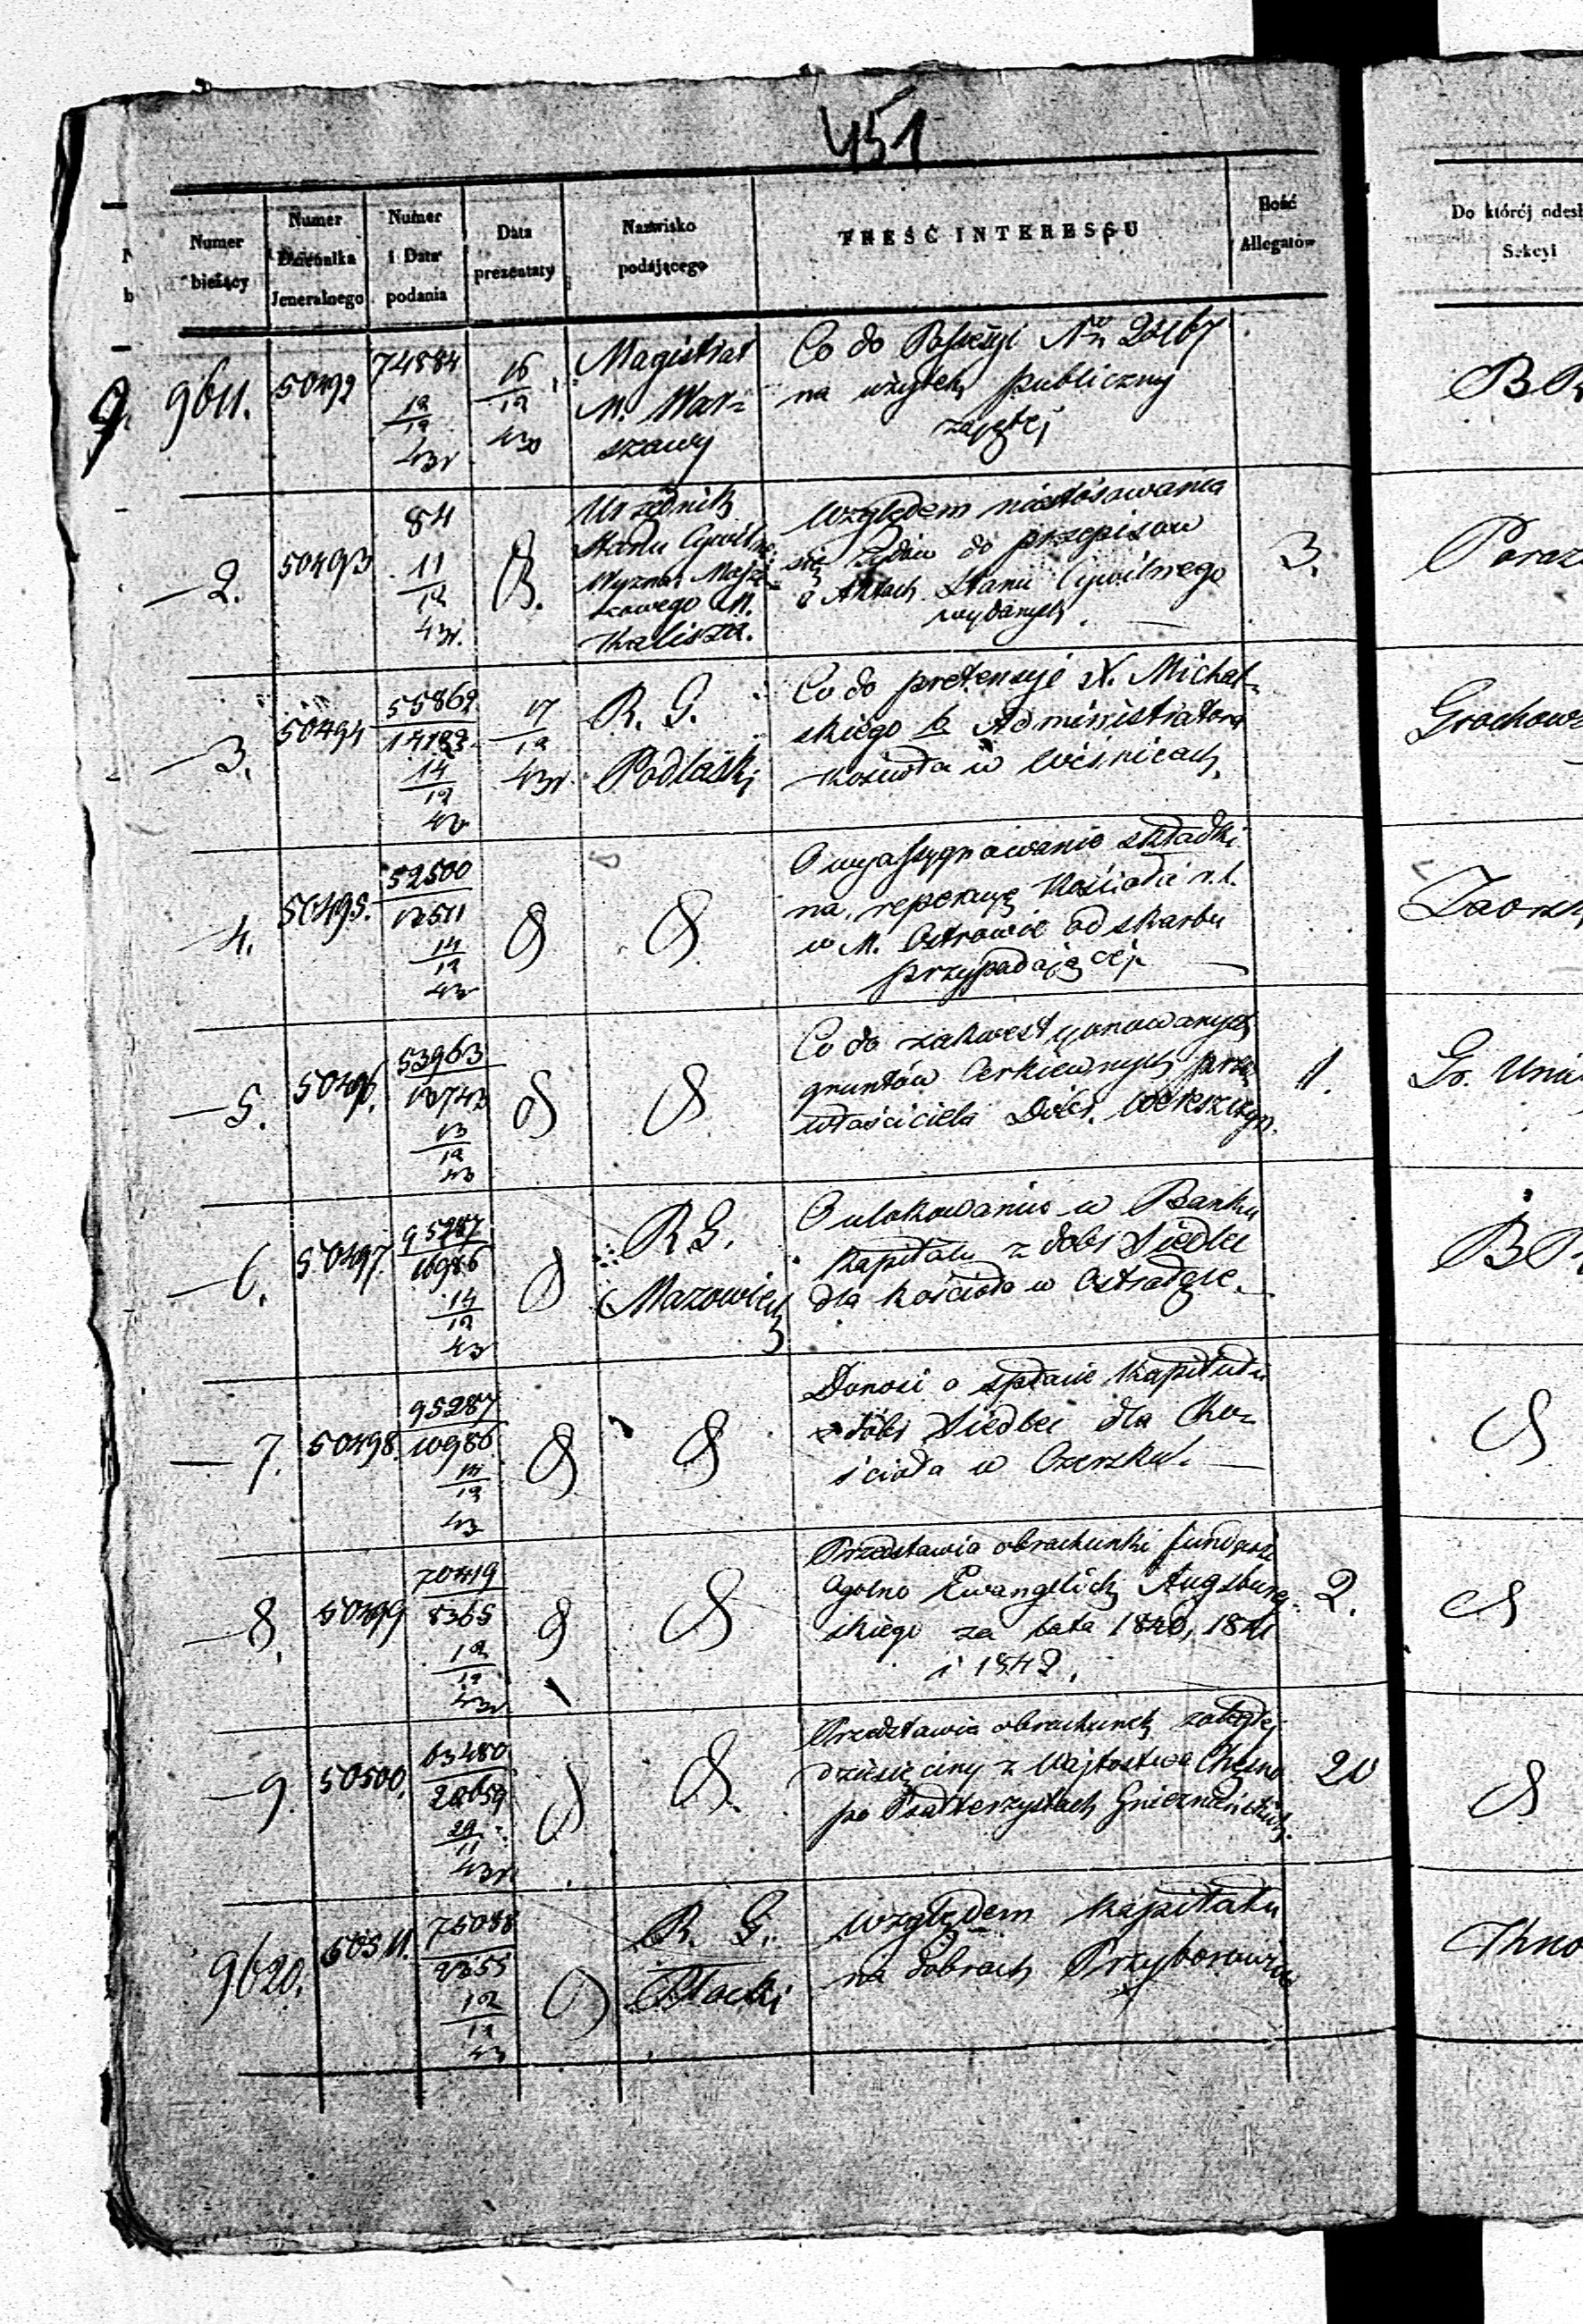 451
Numer bieżący
Numer Dziennika Jeneralnego
Numer i Data podania
Data prezentaty
Nazwisko podającego
TREŚĆ INTERESSU
Ilość Allegatów
Do którój odesł
Sekcyi
9611.
50492
74884
12
12
43r
16
12
43
Magistrat
M. War=
szawy
Co do Possesyi Nr 2246
na użytek publiczny
zajętéj
—2.
50493
84
11
12
43r.
Urzędnik
Stanu Cywilne
Wyznań Mojże=
szowego M.
Kalisza.
Względem niestosowania
się Żydów do przepisow
o Aktach Stanu Cywilnego
wydanych.
3.
—3.
50494
55862
14182
14
12
43
17
12
43r.
R. G.
Podlaski
Co do pretensyi X. Michal=
skiego b. Administratora
Kościoła w Wiśnicach.
Grochows
—4.
50495.
52500
12511
14
12
43
O wyassygnowanie składki
na reperacyę Kościoła r.l.
w M. Ostrowie od skarbu
przypadającéj.
—5.
50496.
53963
13743
13
12
43
Co do zakwestyonowanych
gruntów Cerkiewnych przez
właściciela Dóbr. Wereszczyn.
1.
Gr. Uni
—6.
50497.
95287
10986
14
12
43
R. G.
Mazowieck
O ulokowanie w Banku
Kapitału z dóbr Siedlec
dla Kościoła w
—7.
50498.
95287
10986
14
12
43
Donosi o spłacie Kapitału
z dóbr Siedlec dla Ko=
ścioła w Czersku.
—8.
50499
70419
8365
12
12
43r.
Przedstawia obrachunki funduszu
ogólno Ewangelick Augsburg=
skiego za lata 1840, 1841
i 1842.
2.
—9.
50500.
63480
20659
29
11
43r.
Przedstawia obrachunek zaległej
dziesięciny z Wójtostwa
po Gnieznieńskich.
20
9620.
50511.
75088
2355
12
12
43
R. G.
Płocki
Względem Kapitału
na dobrach Przyborowice